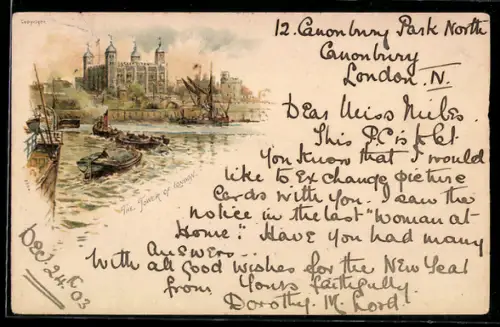 Copyright
12. Canonbury Park North
Canonbury
London. N.
Dear Miss Niebs.
This P.C is to let
you know that I would
like to Exchange picture
cards with you. I saw the
notice in the last "Woman at
Home." Have you had many
answers...
With all good wishes for the New Year
from Yours faithfully.
Dorothy. M. Lord.
THE TOWER OF LONDON.
Dec 24th 03